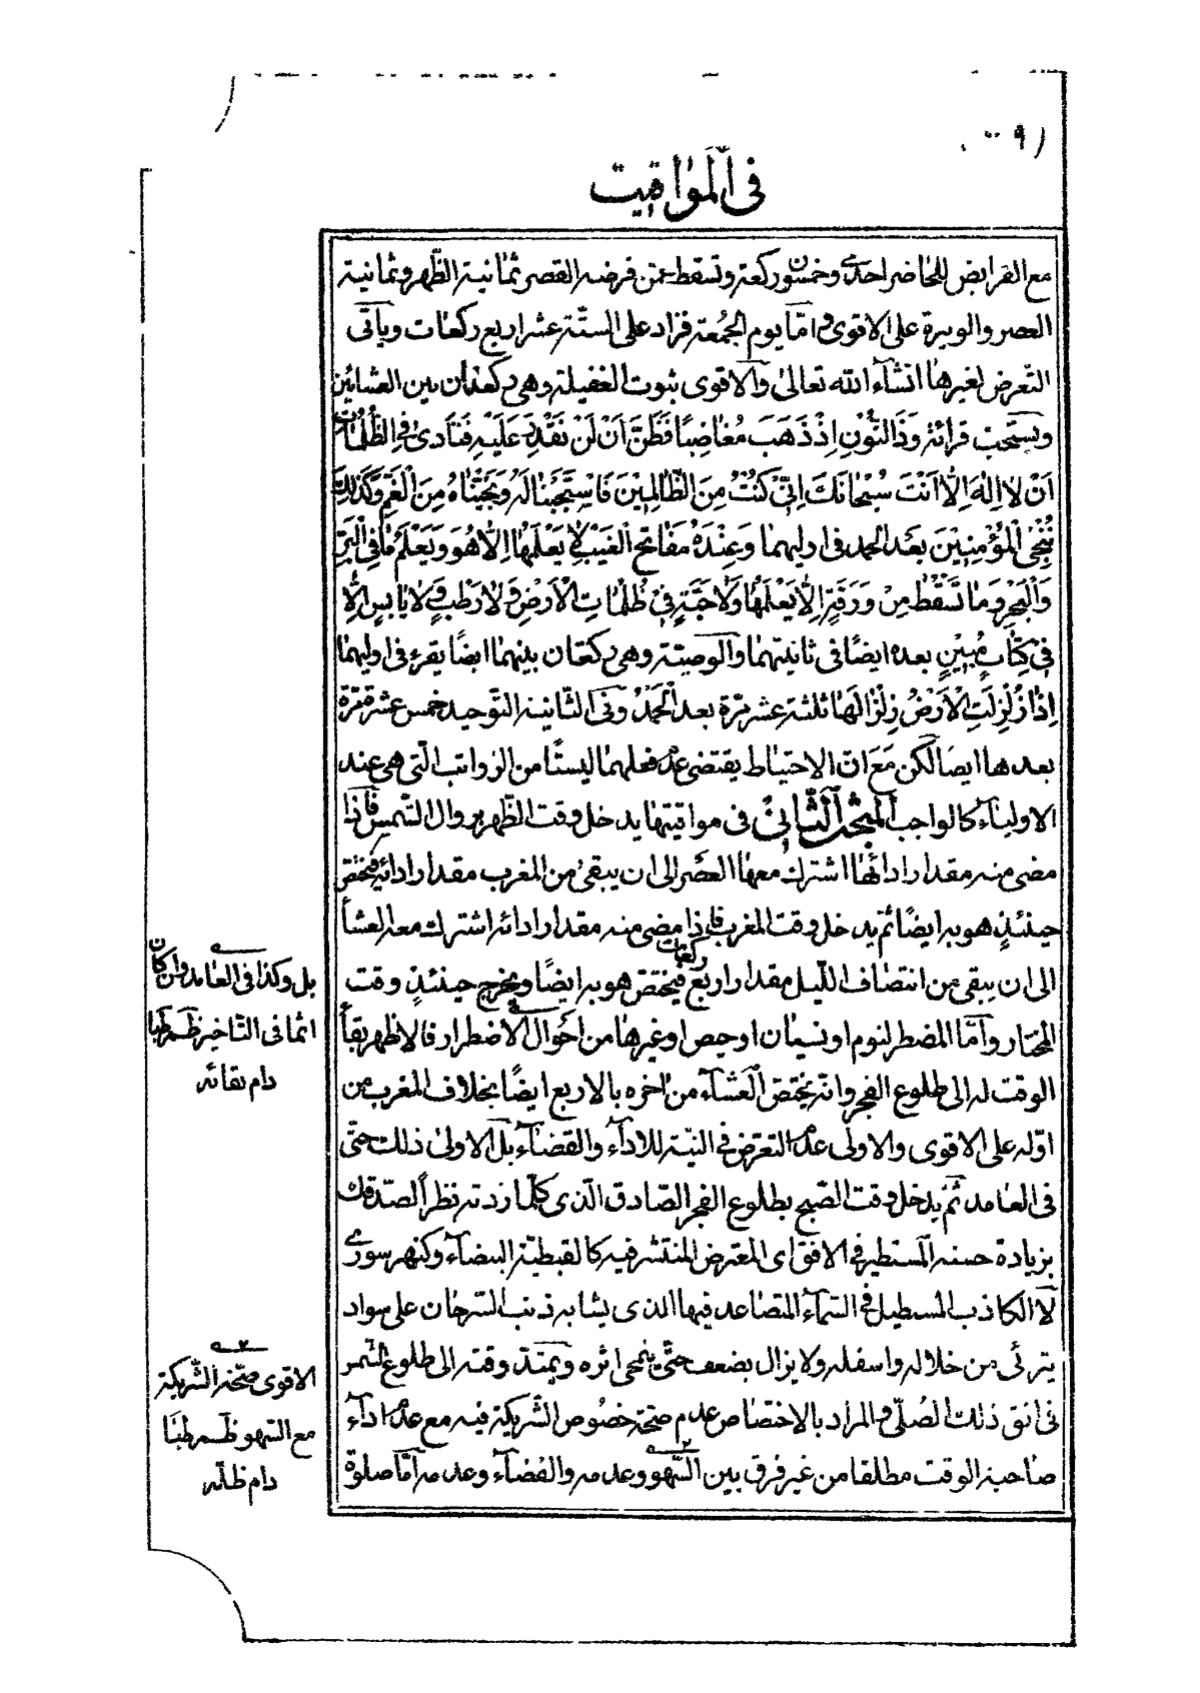 في المواقيت
مع الفرايض للحاضر احدى وخمسون ركعة وتسقط عمن فرضه القصر ثمانية الظهر وثمانية
العصر والوتيرة على الاقوى و امّا يوم الجمعة فزاد على الستّة عشر اربع ركعات وياتى
التعرض لغيرها انشآء الله تعالى والاقوى ثبوت الغفيلة وهى ركعتان بين العشائين
ويستحب قرائة وَذَا النُّونِ اِذْ ذَهَبَ مُغَاضِبًا فَظَنَّ اَنْ لَنْ نَقْدِرَ عَلَيْهِ فَنَادَى فِى الظُّلُمَاتِ
اَنْ لَا اِلَهَ اِلَّا اَنْتَ سُبْحَانَكَ اِنّى كُنْتُ مِنَ الظَّالِمِيْنَ فَاسْتَجَبْنَا لَهُ وَنَجَّيْنَاهُ مِنَ الْغَمِّ وَكَذَلِكَ
نُنْجِى الْمُؤْمِنِيْنَ بعد الحمد فى اوليهما وَعِنْدَهُ مَفَاتِحُ الْغَيْبِ لَا يَعْلَمُهَا اِلَّا هُوَ وَيَعْلَمُ مَا فِى الْبَرِّ
وَالْبَحْرِ وَمَا تَسْقُطُ مِنْ وَرَقَةٍ اِلَّا يَعْلَمُهَا وَلَا حَبَّةٍ فِىْ ظُلُمَاتِ الْاَرْضِ وَلَا رَطْبٍ وَلَا يَابِسٍ اِلَّا
فِى كِتَابٍ مُبِيْنٍ بعده ايضًا فى ثانيتهما والوصيّة وهى ركعتان بينهما ايضًا يقرء فى اوليهما
اِذَا زُلْزِلَتِ الْاَرْضُ زِلْزَالَهَا ثلثة عشر مرّة بعد الحَمْدُ وفى الثّانية التّوحيد خمس عشرة مرّة
بعدها ايضا لكن مَعَ انّ الاحتياط يقتضى عدم فعلهما ليستًا من الرّواتب الّتى هى عند
الاولياء كالواجب المبحث الثّانى فى مواقيتها يدخل وقت الظّهر بزوال الشّمس فاذا
مضى منه مقدار ادائها اشترك معها العصر الى ان يبقى من المغرب مقدار ادائه فيختص
حينئذٍ هو به ايضًا ثم يدخل وقت المغرب فاذا مضى منه مقدار ادائه اشترك معه العشآ
الى ان يبقى من انتصاف اللّيل مقدار اربع ركعات فيختصّ هو به ايضًا ويخرج حينئذٍ وقت
المختار وامّا المضطر لنوم او نسيان او حيض او غيرها من احوال الاضطرار فالاظهر بقآ
الوقت له الى طلوع الفجر وانّه يختصّ العشآء من اخره بالاربع ايضًا بخلاف المغرب من
اوّله على الاقوى والاولى عدم التعرّض فى النيّة للادآء والقضآء بل الاولى ذلك حتّى
فى العامد ثمّ يدخل وقت الصّبح بطلوع الفجر الصّادق الّذى كلّما زدته نظراً اصدقك
بزيادة حسنه المستطير فى الافق اى المعترض المنتشر فيه كالقبطيّة البيضآء وكنهر سورى
لا الكاذب المستطيل فى السّمآء المتصاعد فيها الذى يشابه ذنب السّرحان على سواد
يترائى من خلاله واسفله ولا يزال يضعف حتّى ينمحى اثره ويمتدّ وقته الى طلوع الشّمس
فى افق ذلك المُصلّى و المراد بالاختصاص عدم صحّة خصُوص الشّريكة فيه مع عدم ادآء
صاحبة الوقت مطلقا من غير فرق بين السّهو وعدمه والقضآء وعدمه امّا صلوة
بل وكذا فى العامد وان كان
اثما فى التّاخير ظم طبا
دام بقائه
٢
الاقوى صحّة الشّريكة
مع السّهو ظم طبا
دام ظلّه